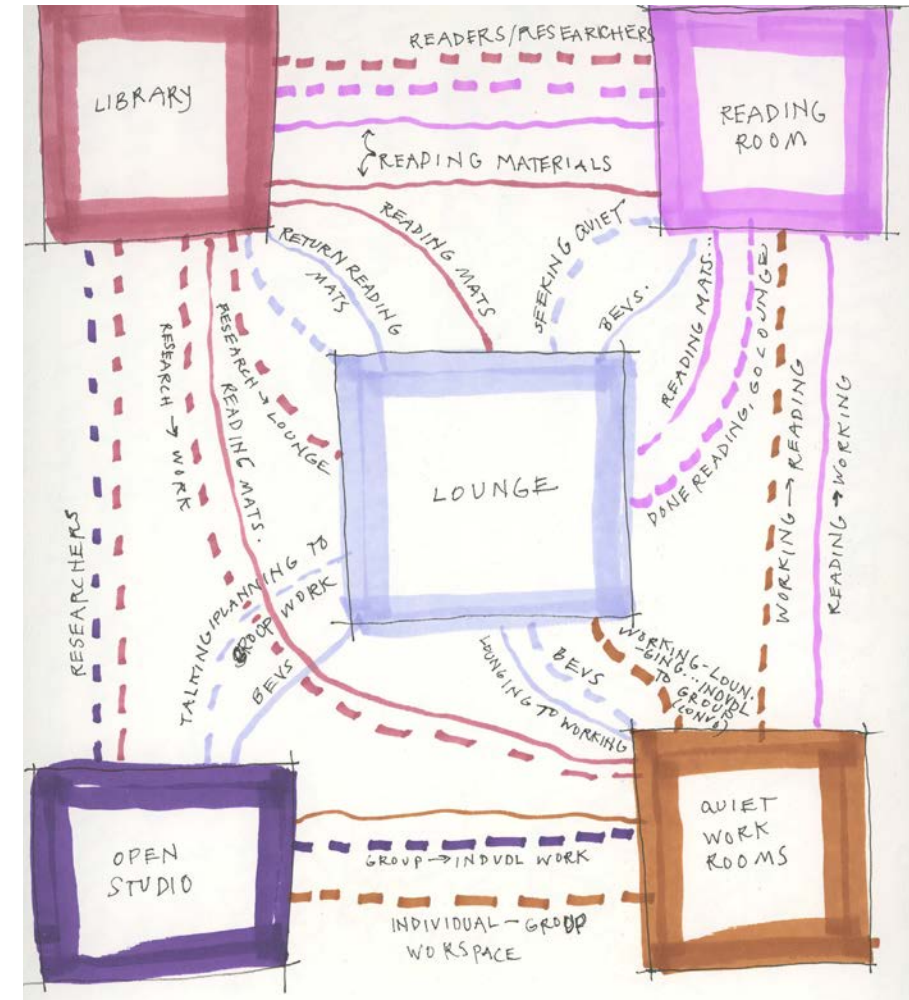 READERS/RESEARCHERS
LIBRARY
READING
ROOM
READING MATERIALS
READING MATS
RETURN READING
MATS
SEEKING QUIET
BEVS.
READING MATS..
DONE READING, GO LOUNGE
RESEARCH → WORK
READING MATS.
RESEARCH → LOUNGE
WORKING → READING
READING → WORKING
LOUNGE
RESEARCHERS
TALKING/PLANNING TO
GROUP WORK
BEVS
LOUNGING TO WORKING
BEVS
WORKING-LOUN.
-GING...INDVDL
TO GROUP
(CONVO)
OPEN
STUDIO
GROUP → INDVDL WORK
INDIVIDUAL — GROUP
WORKSPACE
QUIET
WORK
ROOMS